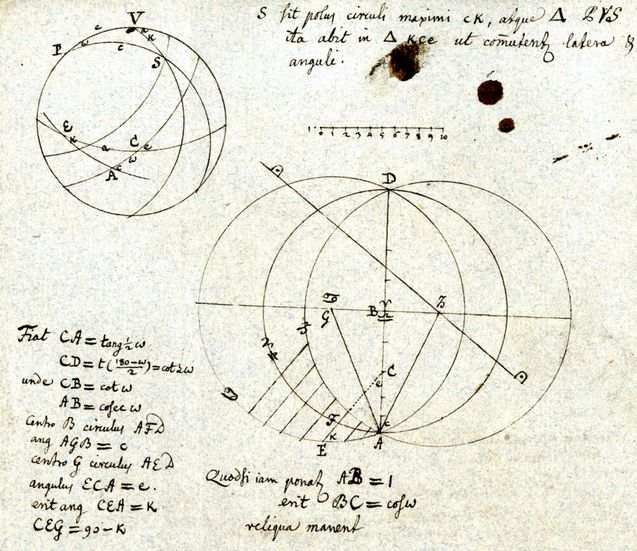 S sit polus circuli maximi CK, atque Δ PVS
ita abit in Δ KCe ut com̄utent latera &
anguli.
P
e
c
V
a
K
S
E
a
C
e
c
w
A
1 0 1 2 3 4 5 6 7 8 9 10
D
G
B
C
e
c
F
K
E
A
Fiat CA = tang ½ ω
CD = t(180-ω/2) = cot ½ ω
unde CB = cot ω
AB = cosec ω
Centro B circulus AFD
ang AGB = c
centro G circulus AED
angulus ECA = e.
erit ang CEA = K
CEG = 90 - K
Quodsi iam ponat AB = 1
erit BC = cos ω
reliqua manent